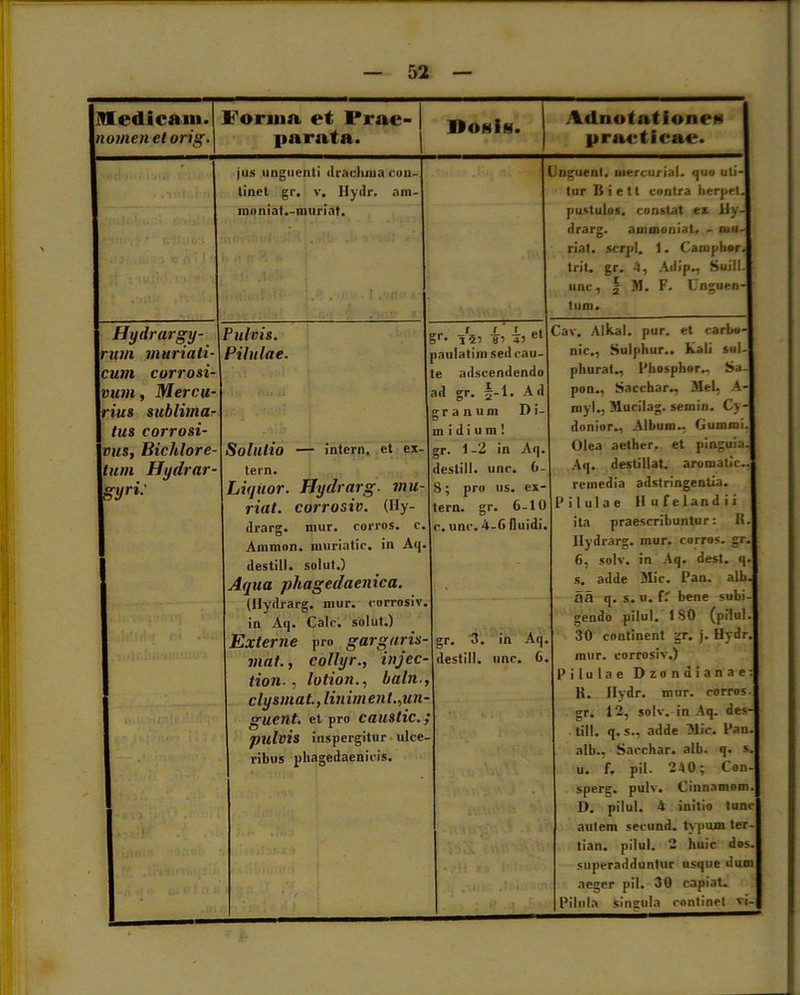 — 52 —
Medicam.
nomen et orig.
Forma et Prae-
parata.
Dosis.
Adnotationes
practicae.
jus unguenti drachma con-
tinet gr. v. Hydr. am-
moniat.-muriat.
Unguent. mercurial. quo uti-
tur Biett contra herpet.
pustulos. constat ex Hy-
drarg. ammoniat. - mu-
riat. scrpl. 1. Camphor.
trit. gr. 4, Adip., Suill.
unc, ½ M. F. Unguen-
tum.
Hydrargy-
rum muriati-
cum corrosi-
vum, Mercu-
rius sublima-
tus corrosi-
vus, Bichlore-
tum Hydrar-
gyri.
Pulvis.
Pilulae.
Solutio — intern. et ex-
tern.
Liquor. Hydrarg. mu-
riat. corrosiv. (Hy-
drarg. mur. corros. c.
Ammon. muriatic. in Aq.
destill. solut.)
Aqua phagedaenica.
(Hydrarg. mur. corrosiv.
in Aq. Calc. solut.)
Externe pro gargaris-
mat., collyr., injec-
tion., lotion., baln.,
clysmat., liniment.,un-
guent. et pro caustic.;
pulvis inspergitur ulce-
ribus phagedaenicis.
gr. 1/12, 1/8, 1/4, et
paulatim sed cau-
te adscendendo
ad gr. ½-1. Ad
granum Di-
midium!
gr. 1-2 in Aq.
destill. unc. 6-
8; pro us. ex-
tern. gr. 6-10
c. unc. 4-6 fluidi.
gr. 3. in Aq.
destill. unc. 6.
Cav. Alkal. pur. et carbo-
nic., Sulphur., Kali sul-
phurat., Phosphor., Sa-
pon., Sacchar., Mel, A-
myl., Mucilag. semin. Cy-
donior., Album., Gummi,
Olea aether. et pinguia.
Aq. destillat. aromatic.,
remedia adstringentia.
Pilulae Hufelandii
ita praescribuntur: R.
Hydrarg. mur. corros. gr.
6, solv. in Aq. dest. q.
s. adde Mic. Pan. alb.
āā q. s. u. f. bene subi-
gendo pilul. 180 (pilul.
30 continent gr. j. Hydr.
mur. corrosiv.)
Pilulae Dzondianae:
R. Hydr. mur. corros.
gr. 12, solv. in Aq. des-
till. q. s., adde Mic. Pan.
alb., Sacchar. alb. q. s.
u. f. pil. 240; Con-
sperg. pulv. Cinnamom.
D. pilul. 4 initio tunc
autem secund. typum ter-
tian. pilul. 2 huic dos.
superadduntur usque dum
aeger pil. 30 capiat.
Pilula singula continet vi-